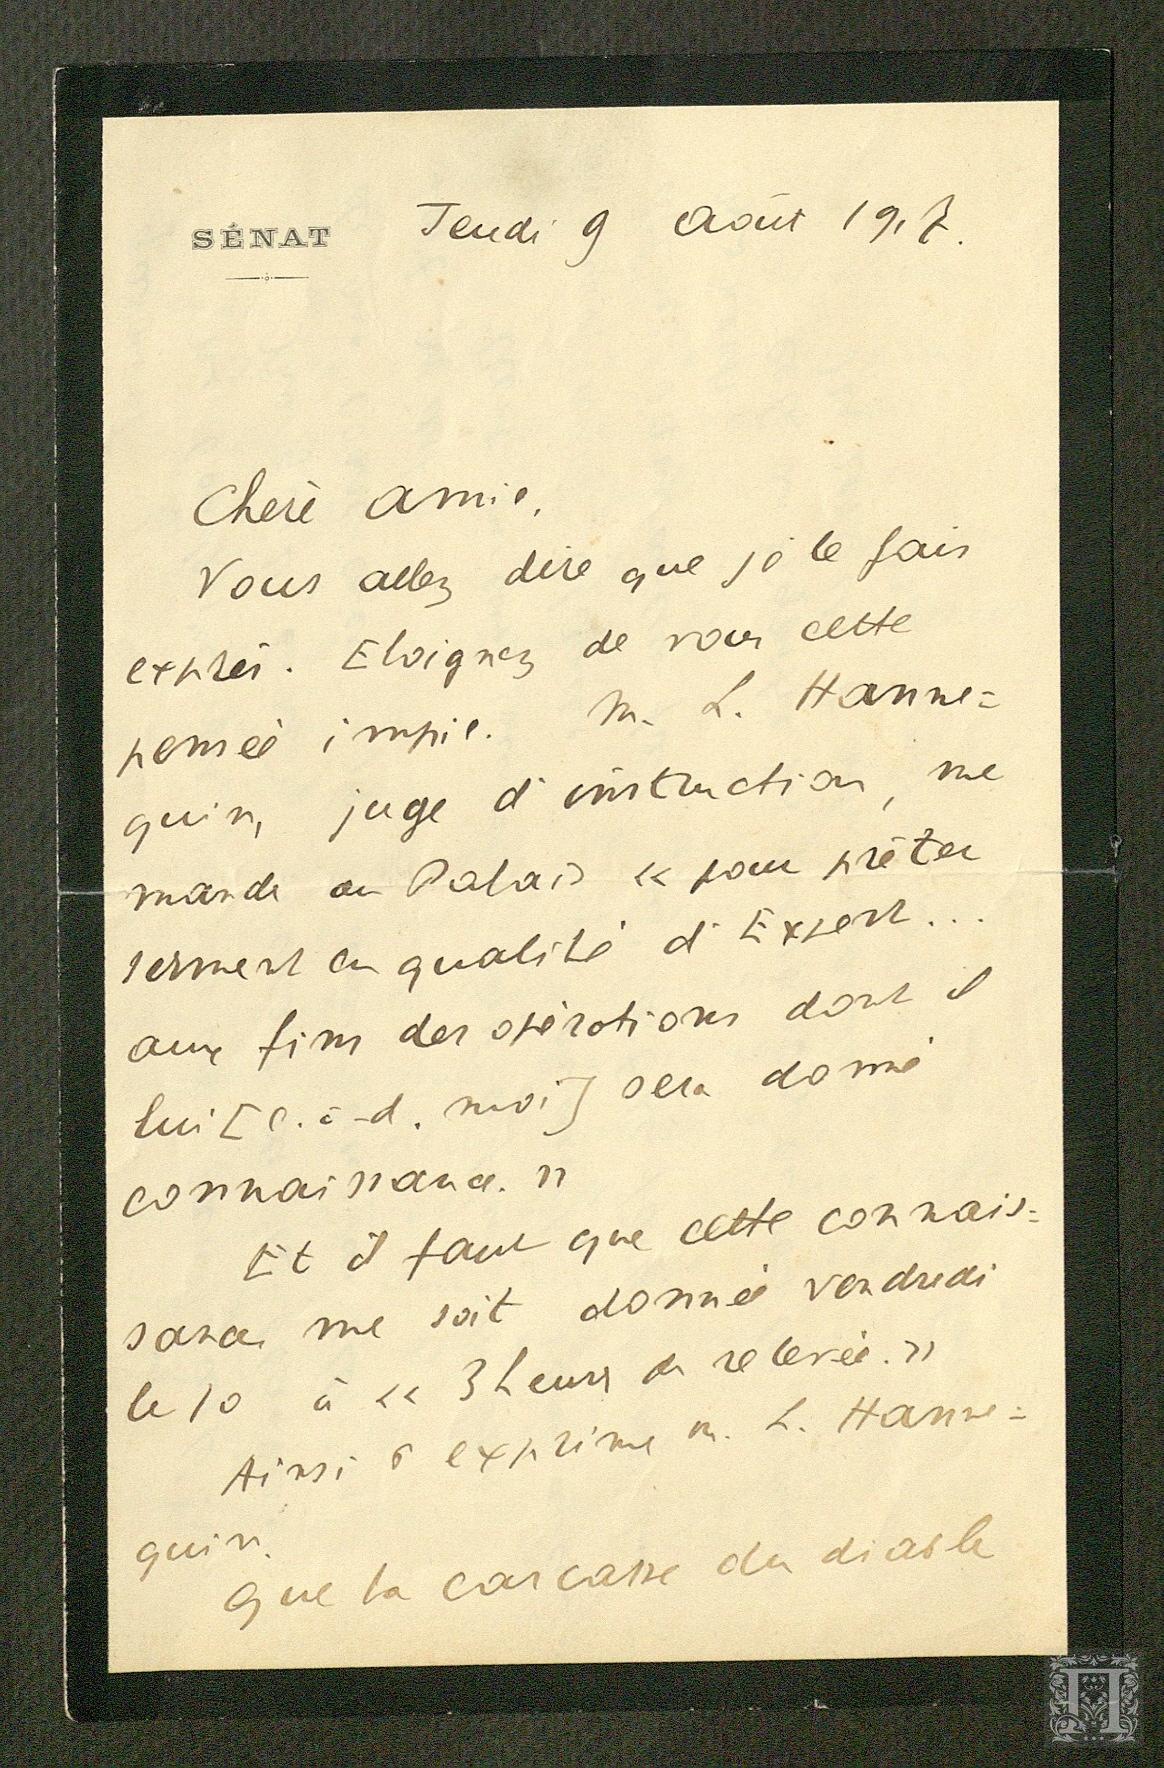 SÉNAT
Jeudi 9 Août 1917.
Chère amie,
Vous allez dire que je le fais
exprès. Eloignez de vous cette
pensée impie. M. L. Hanne=
quin, juge d'instruction, me
mande au Palais « pour prêter
serment en qualité d'Expert...
aux fins des opérations dont il
lui [c.-à-d. moi] sera donné
connaissance. »
Et il faut que cette connais=
sance me soit donnée vendredi
le 10 à « 3 heures de relevée. »
Ainsi s'exprime M. L. Hanne=
quin.
Que la carcasse du diable